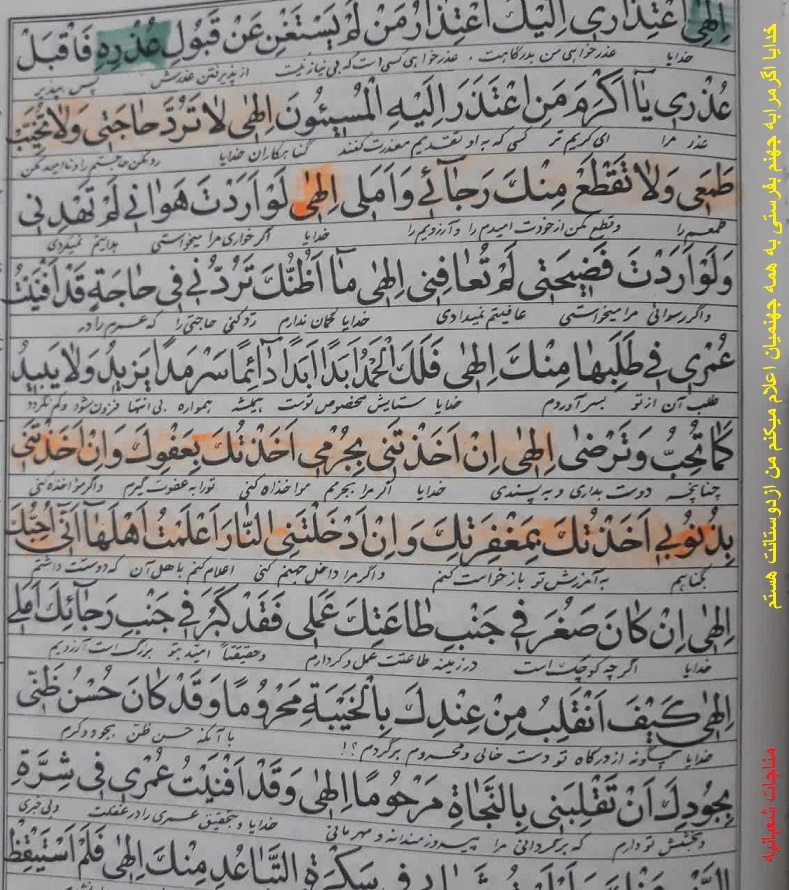 اِلٰهِی اعْتِذٰارِی اِلَیْكَ اعْتِذٰارُ مَنْ لَمْ یَسْتَغْنِ عَنْ قَبُولِ عُذْرِهِ فَاقْبَلْ
خدایا عذرخواهی من بدرگاهت، عذرخواهی کسی است که بی نیاز نیست از پذیرفتن عذرش پس بپذیر
عُذْرِی یٰا اَكْرَمَ مَنِ اعْتَذَرَ اِلَیْهِ الْمُسِیئُونَ اِلٰهِی لاٰتَرُدَّ حٰاجَتِی وَلاٰ تُخَیِّبْ
عذر مرا ای کریم تر کسی که به او تقدیم معذرت کنند گناهکاران خدایا رد مکن حاجتم را و ناامید مکن
طَمَعِی وَلاٰ تَقْطَعْ مِنْكَ رَجٰائِی وَ اَمَلِی اِلٰهِی لَوْ اَرَدْتَ هَوٰانِی لَمْ تَهْدِنِی
طمعم را و قطع مکن از خودت امیدم را و آرزویم را خدایا اگر خواری مرا میخواستی هدایتم نمیکردی
وَلَوْ اَرَدْتَ فَضِیحَتِی لَمْ تُعٰافِنِی اِلٰهِی مٰا اَظُنُّكَ تَرُدُّنِی فِی حٰاجَةٍ قَدْ اَفْنَیْتُ
و اگر رسوائی مرا میخواستی عافیتم نمیدادی خدایا گمان ندارم رد کنی حاجتی را که عمرم را در
عُمْرِی فِی طَلَبِهٰا مِنْكَ اِلٰهِی فَلَكَ الْحَمْدُ اَبَدًا اَبَدًا دٰائِمًا سَرْمَدًا یَزِیدُ وَلاٰ یَبِیدُ
طلب آن از تو بسر آوردم خدایا ستایش مخصوص توست همیشه همواره بی انتها فزون شود و کم نگردد
كَمٰا تُحِبُّ وَ تَرْضٰی اِلٰهِی اِنْ اَخَذْتَنِی بِجُرْمِی اَخَذْتُكَ بِعَفْوِكَ وَ اِنْ اَخَذْتَنِی
چنانچه دوست بداری و به پسندی خدایا اگر مرا بجرمم مؤاخذه کنی تو را به عفوت گیرم و اگر مؤاخذه کنی
بِذُنُوبِی اَخَذْتُكَ بِمَغْفِرَتِكَ وَ اِنْ اَدْخَلْتَنِی النّٰارَ اَعْلَمْتُ اَهْلَهٰا اَنِّی اُحِبُّكَ
بگناهم به آمرزش تو بازخواست کنم و اگر مرا داخل جهنم کنی اعلام کنم باهل آن که دوست داشتم
اِلٰهِی اِنْ كٰانَ صَغُرَ فِی جَنْبِ طٰاعَتِكَ عَمَلِی فَقَدْ كَبُرَ فِی جَنْبِ رَجٰائِكَ اَمَلِی
خدایا اگرچه کوچک است در زمینه طاعتت عمل و کردارم و حقیقتاً امید بتو بزرگ است آرزویم
اِلٰهِی كَیْفَ اَنْقَلِبُ مِنْ عِنْدِكَ بِالْخَیْبَةِ مَحْرُومًا وَ قَدْ كٰانَ حُسْنُ ظَنِّی
خدایا چگونه از درگاه تو دست خالی و محروم برگردم ؟! با آنکه حسن ظن بجود و کرم
بِجُودِكَ اَنْ تَقْلِبَنِی بِالنَّجٰاةِ مَرْحُومًا اِلٰهِی وَ قَدْ اَفْنَیْتُ عُمْرِی فِی شِرَّةِ
و بخشش تو دارم که برگردانی مرا پیروزمندانه و مهربانی خدایا و بتحقیق عمری را در غفلت و بی خبری
سَكْرَةِ التَّبٰاعُدِ مِنْكَ اِلٰهِی فَلَمْ اَسْتَیْقِظْ
خدایا اگر مرا به جهنم بفرستی به همه جهنمیان اعلام میکنم من از دوستانت هستم
مناجات شعبانیه